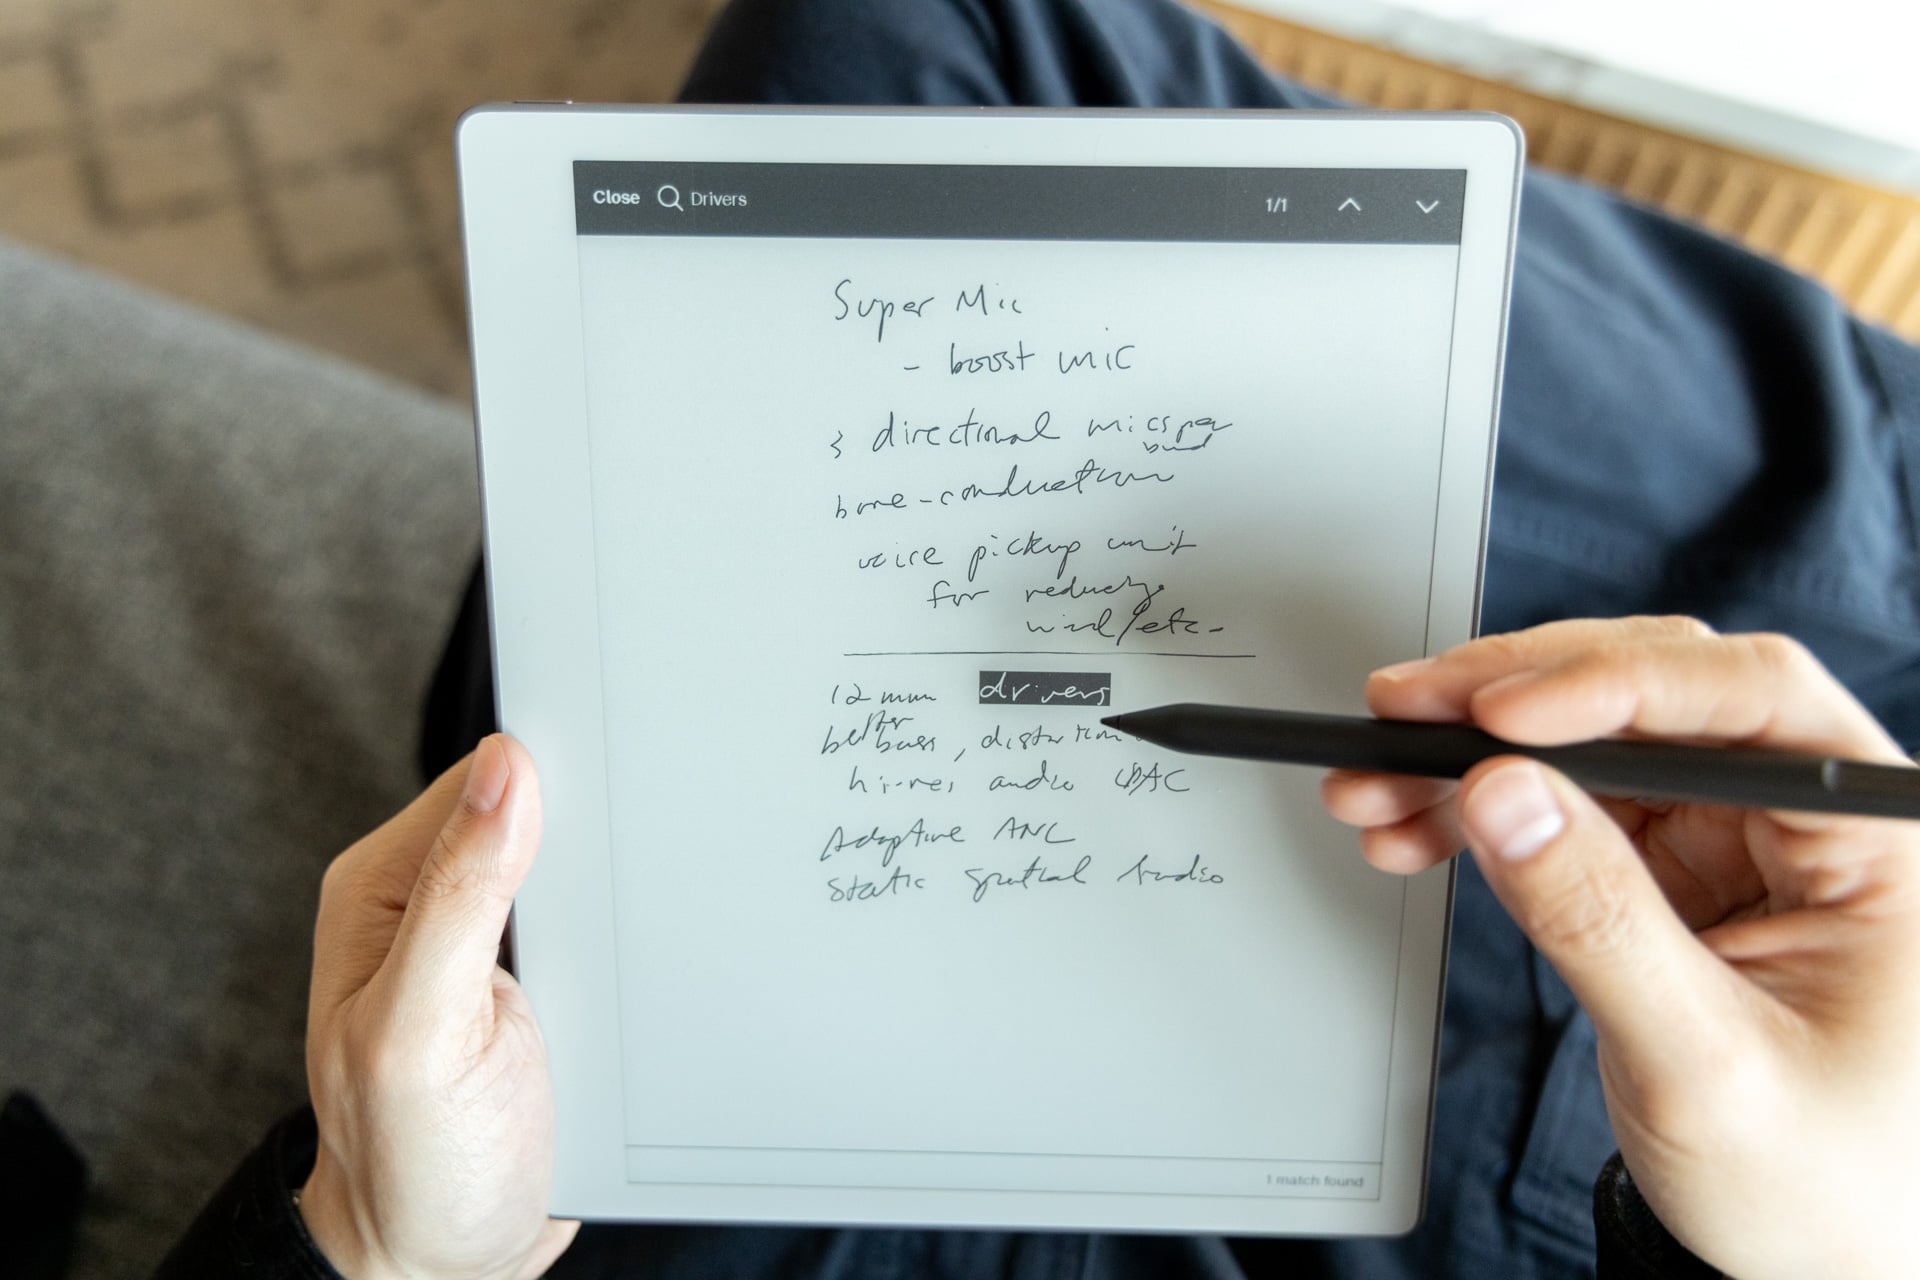 Close Drivers 1/1
Super Mic
- boost mic
3 directional mics per
bud
bone-conduction
voice pickup unit
for reducing
wind/etc.
12 mm drivers
better
bass, distortion
hi-res audio LDAC
Adaptive ANC
Static Spatial Audio
1 match found